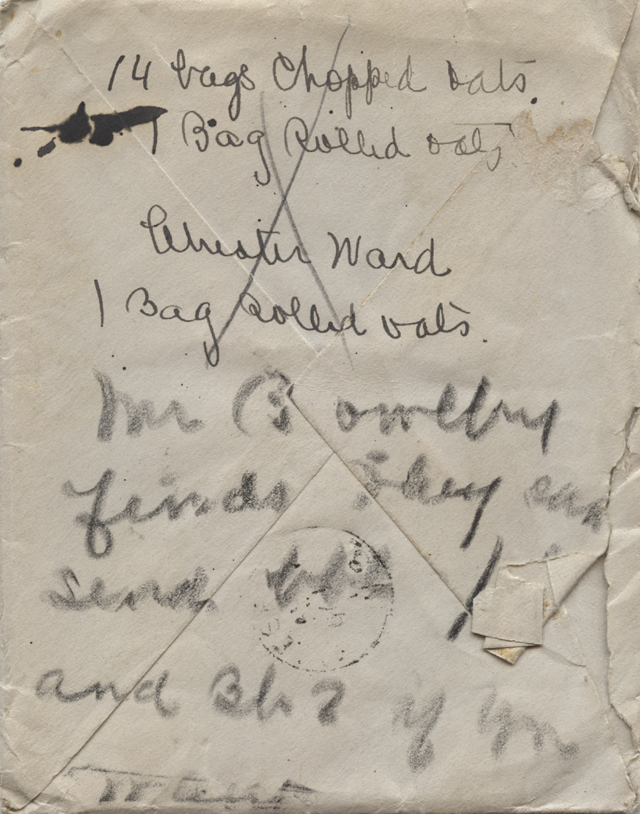 14 bags Chopped oats.
1 Bag Rolled oats
Chester Ward
1 Bag Rolled oats.
Mr B
finds they can
send
and if you
want